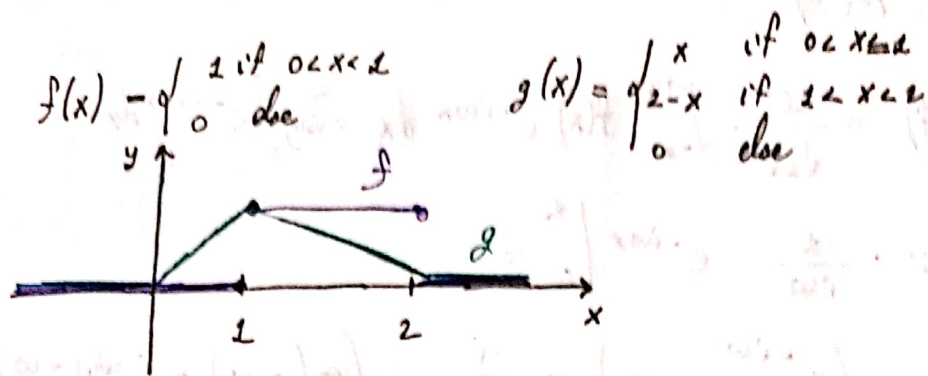 f(x) = { 1 if 0 < x < 1
0 else
g(x) = { x if 0 < x ≤ 1
2-x if 1 < x < 2
0 else
y
f
g
1 2 x